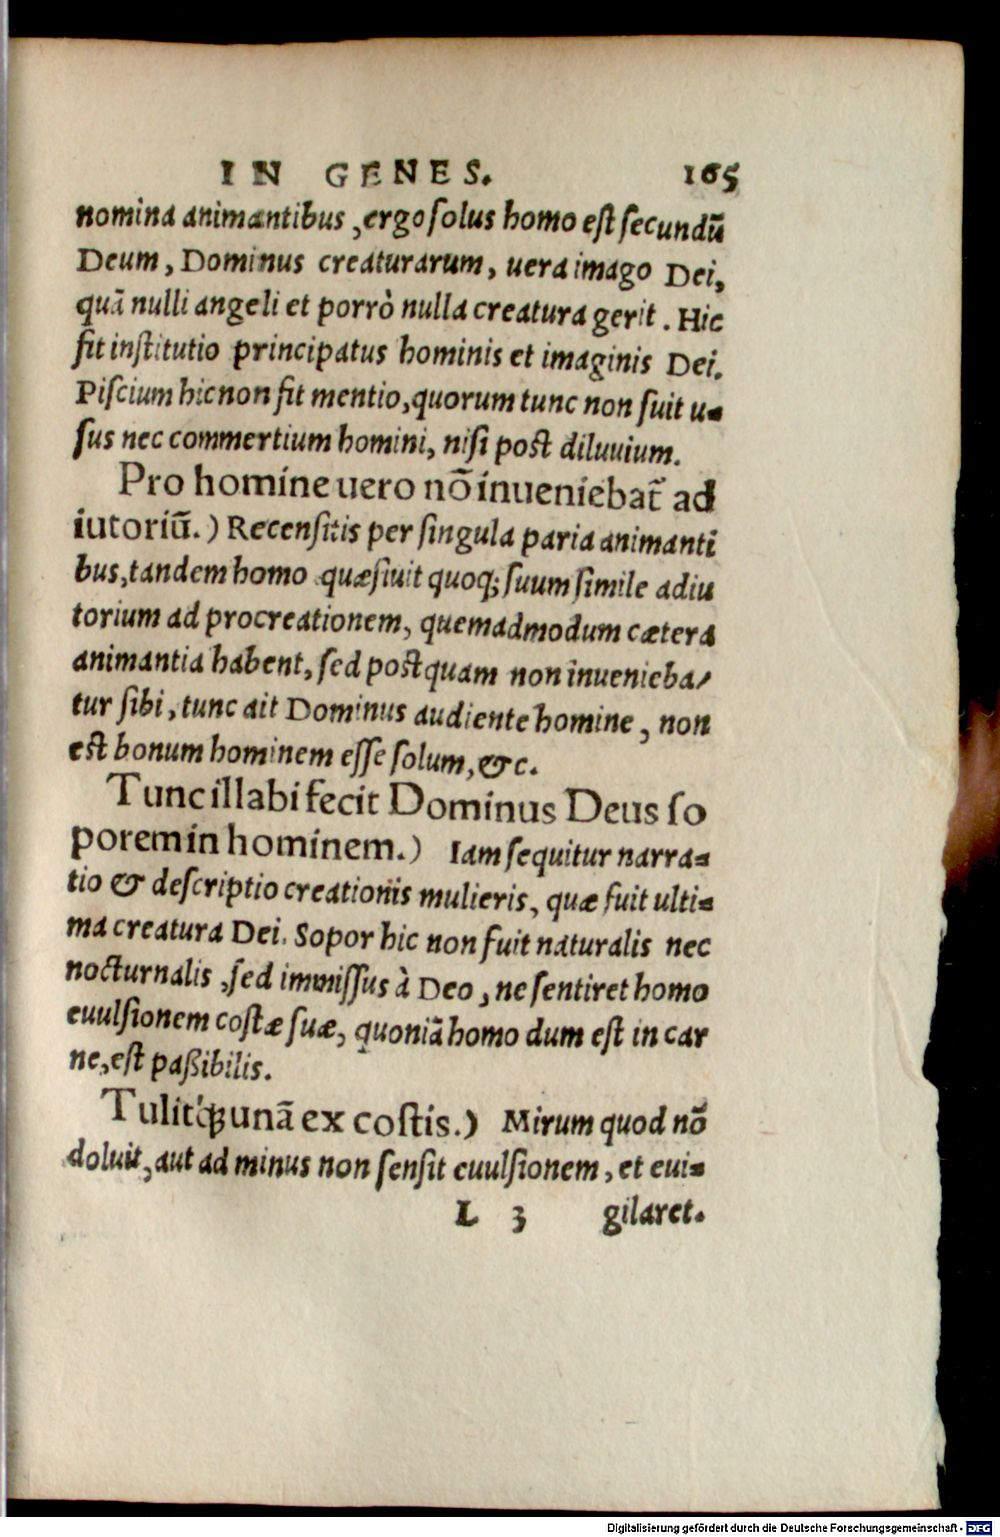 IN GENES. 165
nomina animantibus, ergo solus homo est secundũ
Deum, Dominus creaturarum, uera imago Dei,
quã nulli angeli et porrò nulla creatura gerit. Hic
fit institutio principatus hominis et imaginis Dei.
Piscium hic non fit mentio, quorum tunc non fuit u-
sus nec commertium homini, nisi post diluuium.
Pro homine uero nõ inueniebat̃ ad
iutoriũ.) Recensitis per singula paria animanti
bus, tandem homo quæsiuit quoq; suum simile adiu
torium ad procreationem, quemadmodum cætera
animantia habent, sed postquam non inuenieba-
tur sibi, tunc ait Dominus audiente homine, non
est bonum hominem esse solum, &c.
Tunc illabi fecit Dominus Deus so
porem in hominem.) Iam sequitur narra-
tio & descriptio creationis mulieris, quæ fuit ulti-
ma creatura Dei. Sopor hic non fuit naturalis nec
nocturnalis, sed immissus à Deo, ne sentiret homo
euulsionem costæ suæ, quoniã homo dum est in car
ne, est paßibilis.
Tulitq́; unã ex costis.) Mirum quod nõ
doluit, aut ad minus non sensit euulsionem, et eui-
L 3 gilaret.
Digitalisierung gefördert durch die Deutsche Forschungsgemeinschaft - DFG